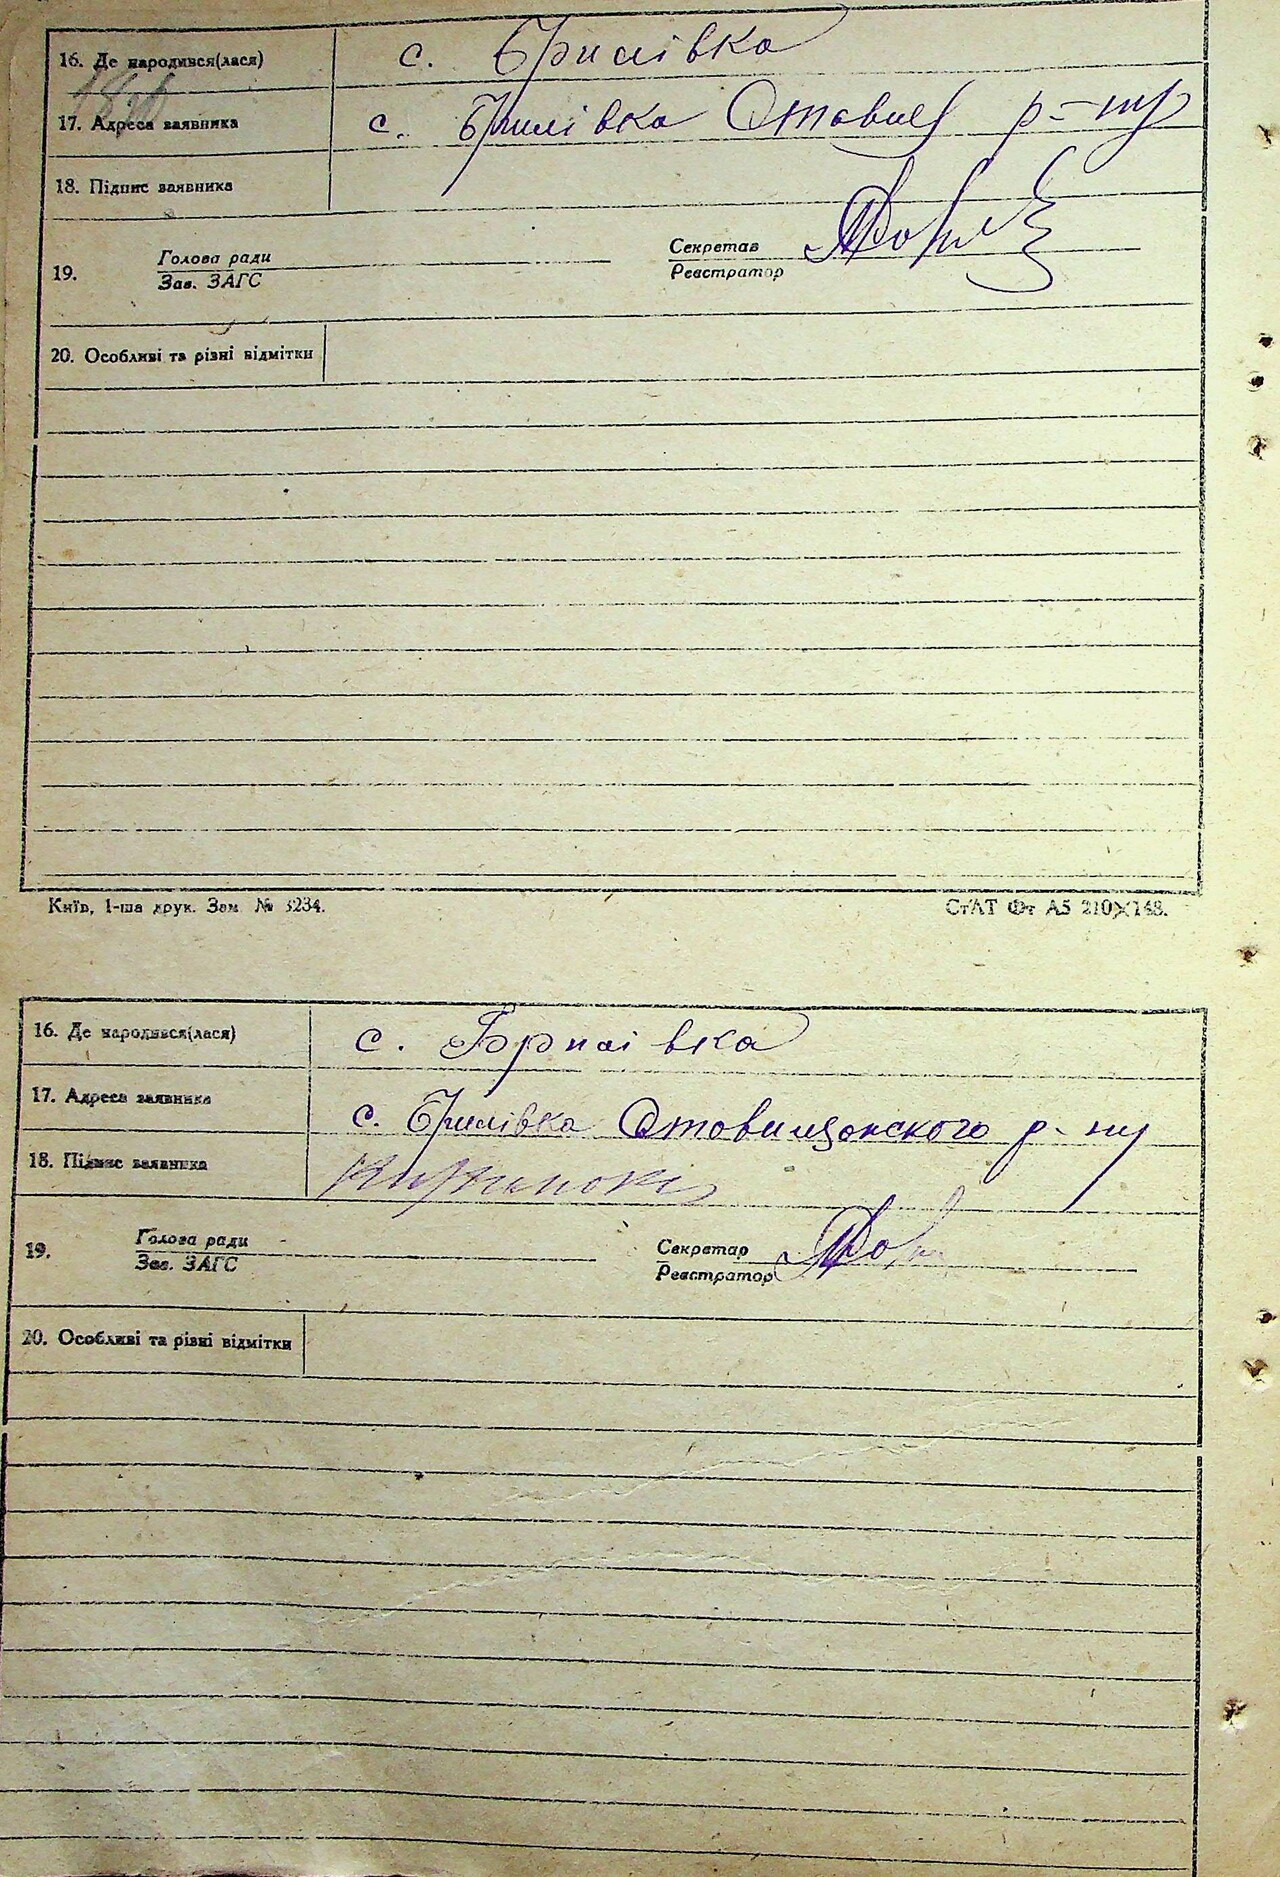 16. Де народився(лася) с. Брилівка
17. Адреса заявника с. Брилівка Ставищ р-ну
18. Підпис заявника
19. Голова ради Секретар
Зав. ЗАГС Реєстратор
20. Особливі та різні відмітки
Київ, 1-ша друк. Зам. № 3234.
СтАТ Фт А5 210×148.
16. Де народився(лася) с. Брилівка
17. Адреса заявника с. Брилівка Ставищанського р-ну
18. Підпис заявника
19. Голова ради Секретар
Зав. ЗАГС Реєстратор
20. Особливі та різні відмітки